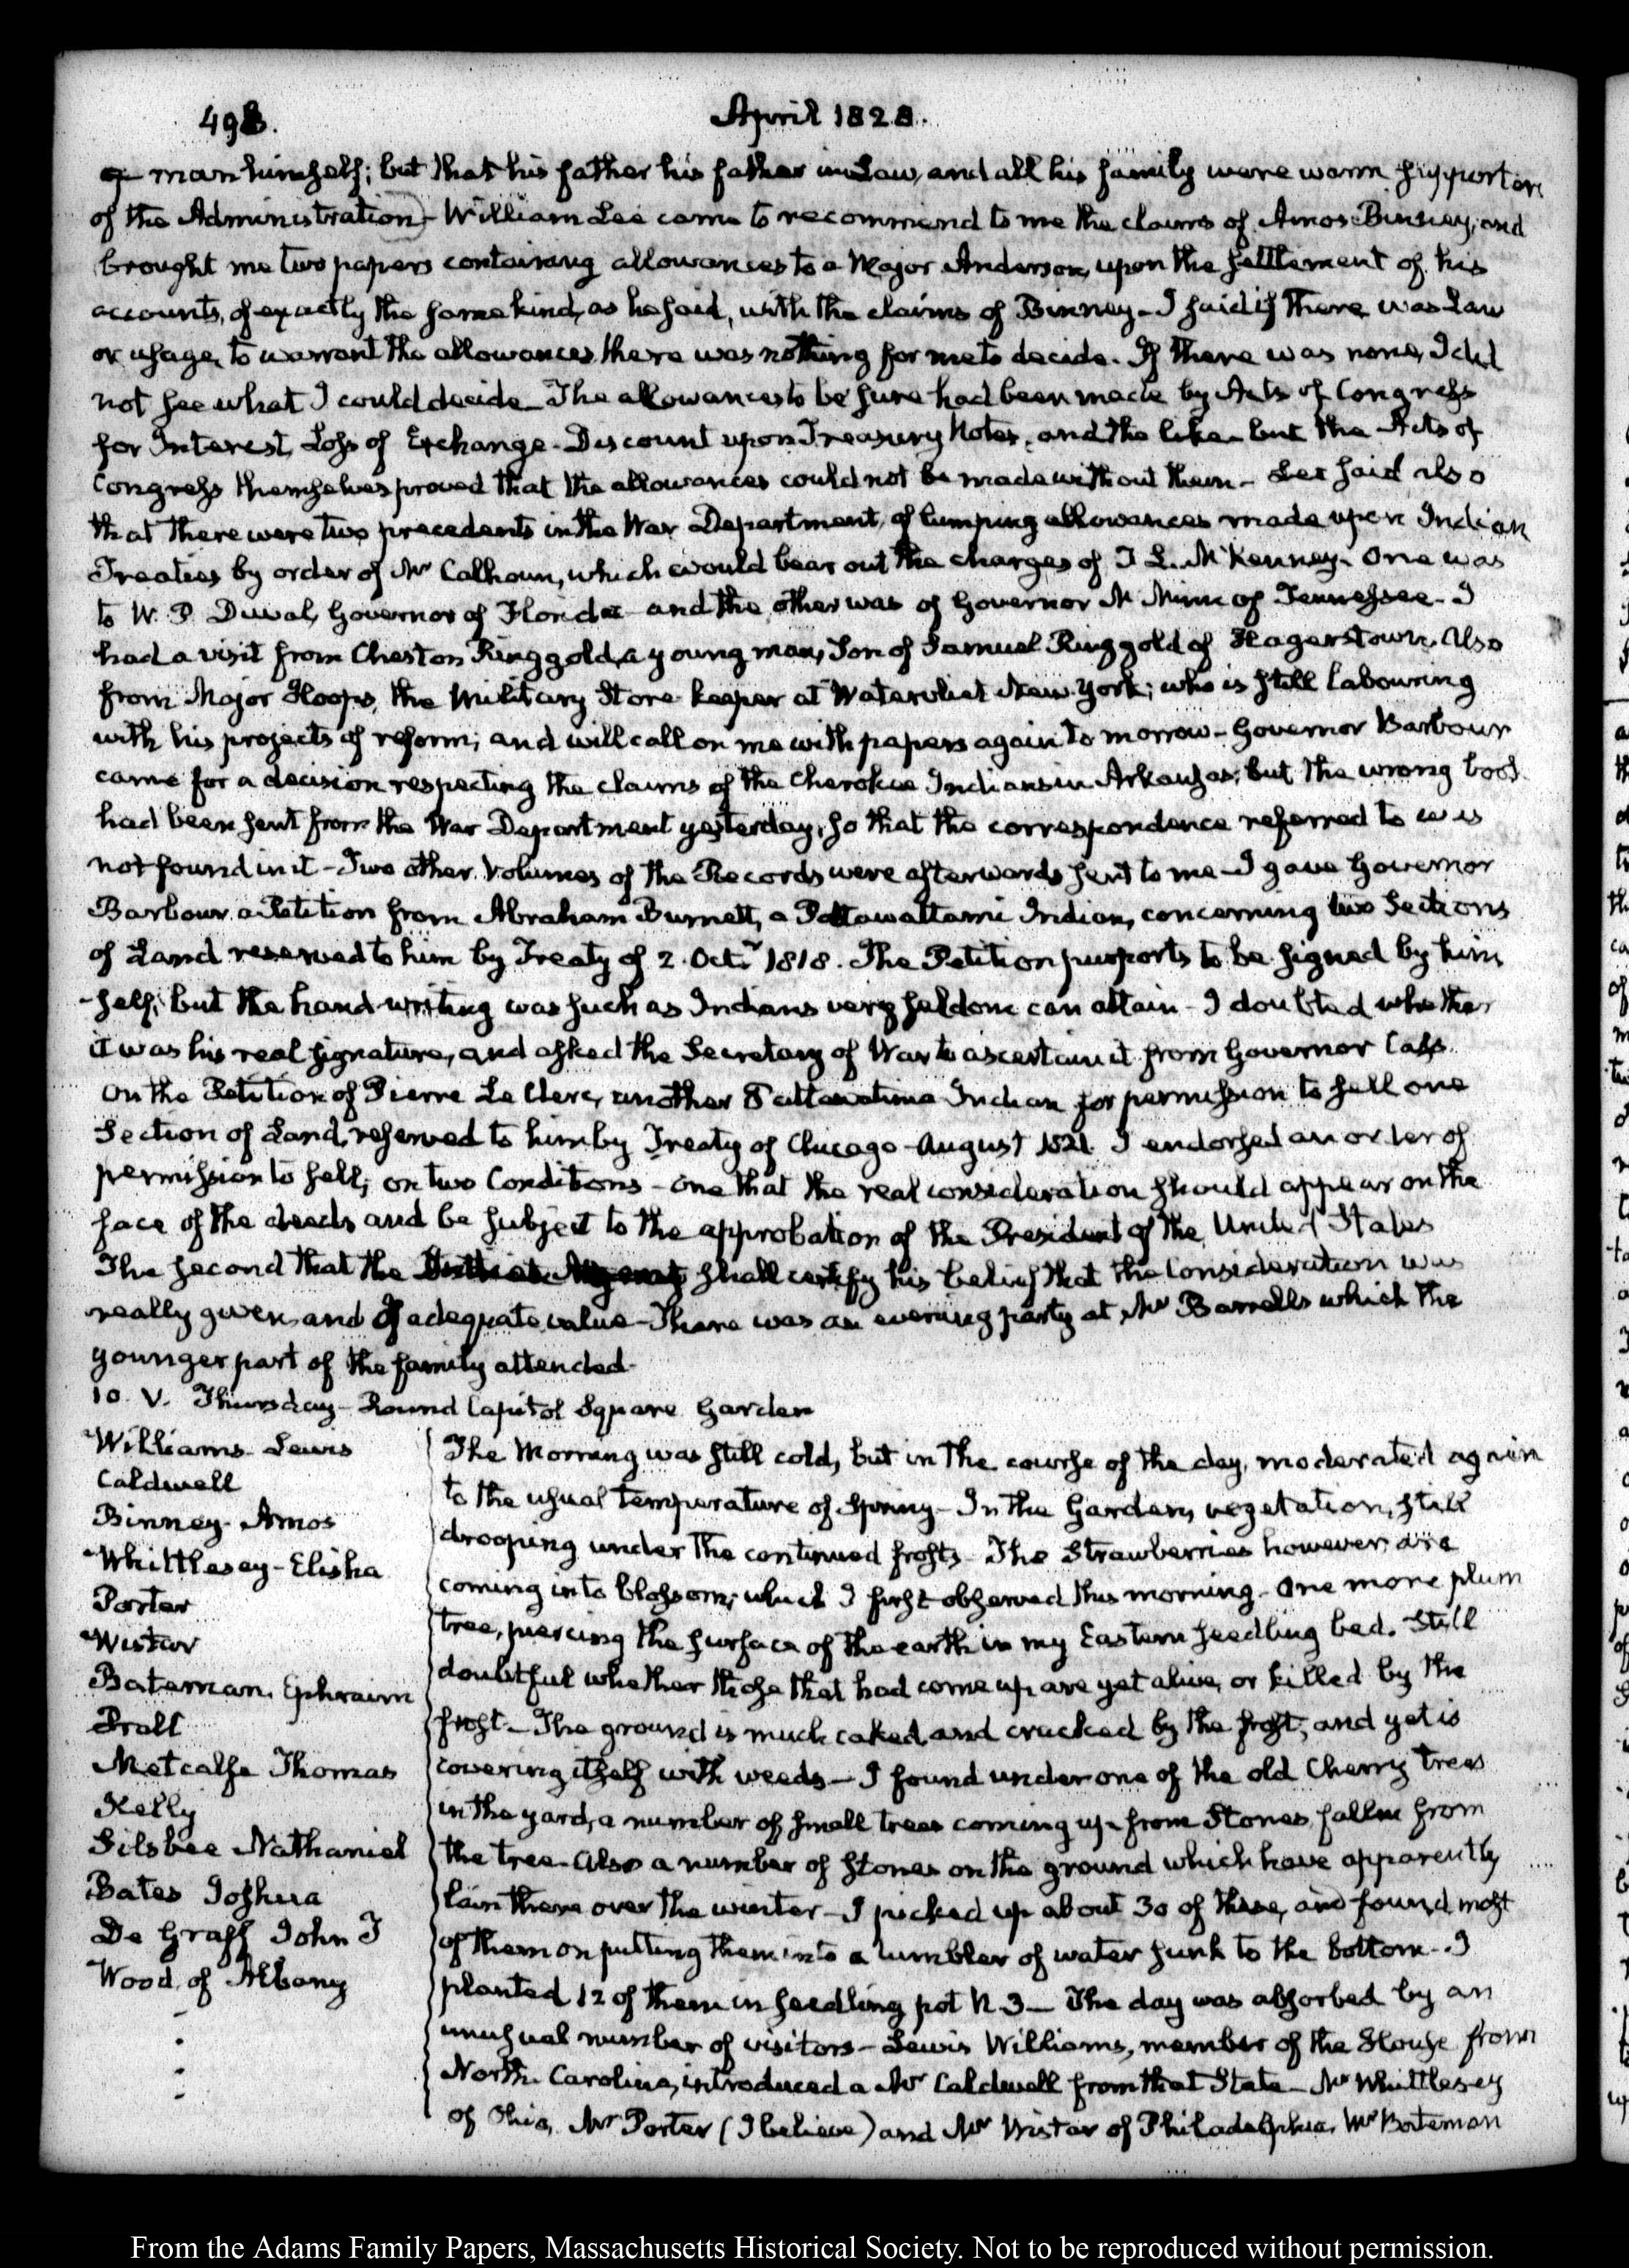 498.
April 1828.
man himself; but that his father his father in Law, and all his family were warm supporters
of the Administration) - William Lee came to recommend to me the claims of Amos Binney; and
brought me two papers containing allowances to a Major Anderson, upon the settlement of his
accounts, of exactly the same kind, as he said, with the claims of Binney - I said if there was Law
or usage, to warrant the allowances, there was nothing for me to decide. If there was none, I did
not see what I could decide - The allowances to be sure had been made by Acts of Congress
for Interest, Loss of Exchange - Discount upon Treasury Notes, and the like - but the Acts of
Congress themselves proved that the allowances could not be made without them - Lee said also
that there were two precedents in the War Department, of lumping allowances made upon Indian
Treaties by order of Mr Calhoun, which would bear out the charges of T L. McKenney - One was
to W. P. Duval, Governor of Florida - and the other was of Governor McMinn of Tennessee - I
had a visit from Cheston Ringgold, a young man, Son of Samuel Ringgold of Hagerstown. Also
from Major Hoops, the Military Store keeper at Watervliet New York; who is still labouring
with his projects of reform; and will call on me with papers again to morrow - Governor Barbour
came for a decision respecting the claims of the Cherokee Indians in Arkansas; but the wrong book
had been sent from the War Department yesterday, so that the correspondence referred to was
not found in it - Two other Volumes of the Records were afterwards sent to me - I gave Governor
Barbour a Petition from Abraham Burnett, a Pottawattami Indian, concerning two Sections
of Land reserved to him by Treaty of 2 Octr 1818. The Petition purports to be signed by him
-self; but the hand-writing was such as Indians very seldom can attain - I doubted whether
it was his real signature, and asked the Secretary of War to ascertain it from Governor Cass.
On the Petition of Pierre Le Clerc, another Indian for permission to sell one
Section of Land, reserved to him by Treaty of Chicago - August 1821. I endorsed an order of
permission to sell; on two Conditions - One that the real consideration should appear on the
face of the deeds and be subject to the approbation of the President of the United States
The second that the shall certify his belief that the Consideration was
really given, and of adequate value - There was an evening party at Mr Barrell's which the
younger part of the family attended -
10. V. Thursday - Round Capitol Square Garden
Williams - Lewis
Caldwell
Binney - Amos
Whittlesey - Elisha
Porter
Wistar
Bateman. Ephraim
Metcalfe Thomas
Kelly
Silsbee Nathaniel
Bates Joshua
De Graff John I
Wood of Albany
The Morning was still cold, but in the course of the day, moderated again
to the usual temperature of Spring - In the Garden, vegetation, still
drooping under the continued frosts - The Strawberries however, are
coming into blossom; which I first observed this morning. One more plum
tree, piercing the surface of the earth in my Eastern seedling bed. Still
doubtful whether those that had come up are yet alive, or killed by the
frost - The ground is much caked and cracked by the frost, and yet is
covering itself with weeds - I found under one of the old Cherry trees
in the yard, a number of small trees coming up from Stones fallen from
the tree - also a number of stones on the ground which have apparently
lain there over the winter - I picked up about 30 of these, and found most
of them on putting them into a tumbler of water sunk to the bottom - I
planted 12 of them in seedling pot N. 3 - The day was absorbed by an
unusual number of visitors - Lewis Williams, member of the House from
North Carolina, introduced a Mr Caldwell from that State - Mr Whittlesey
of Ohio, Mr Porter (I believe) and Mr Wistar of Philadelphia, Mr Bateman
From the Adams Family Papers, Massachusetts Historical Society. Not to be reproduced without permission.